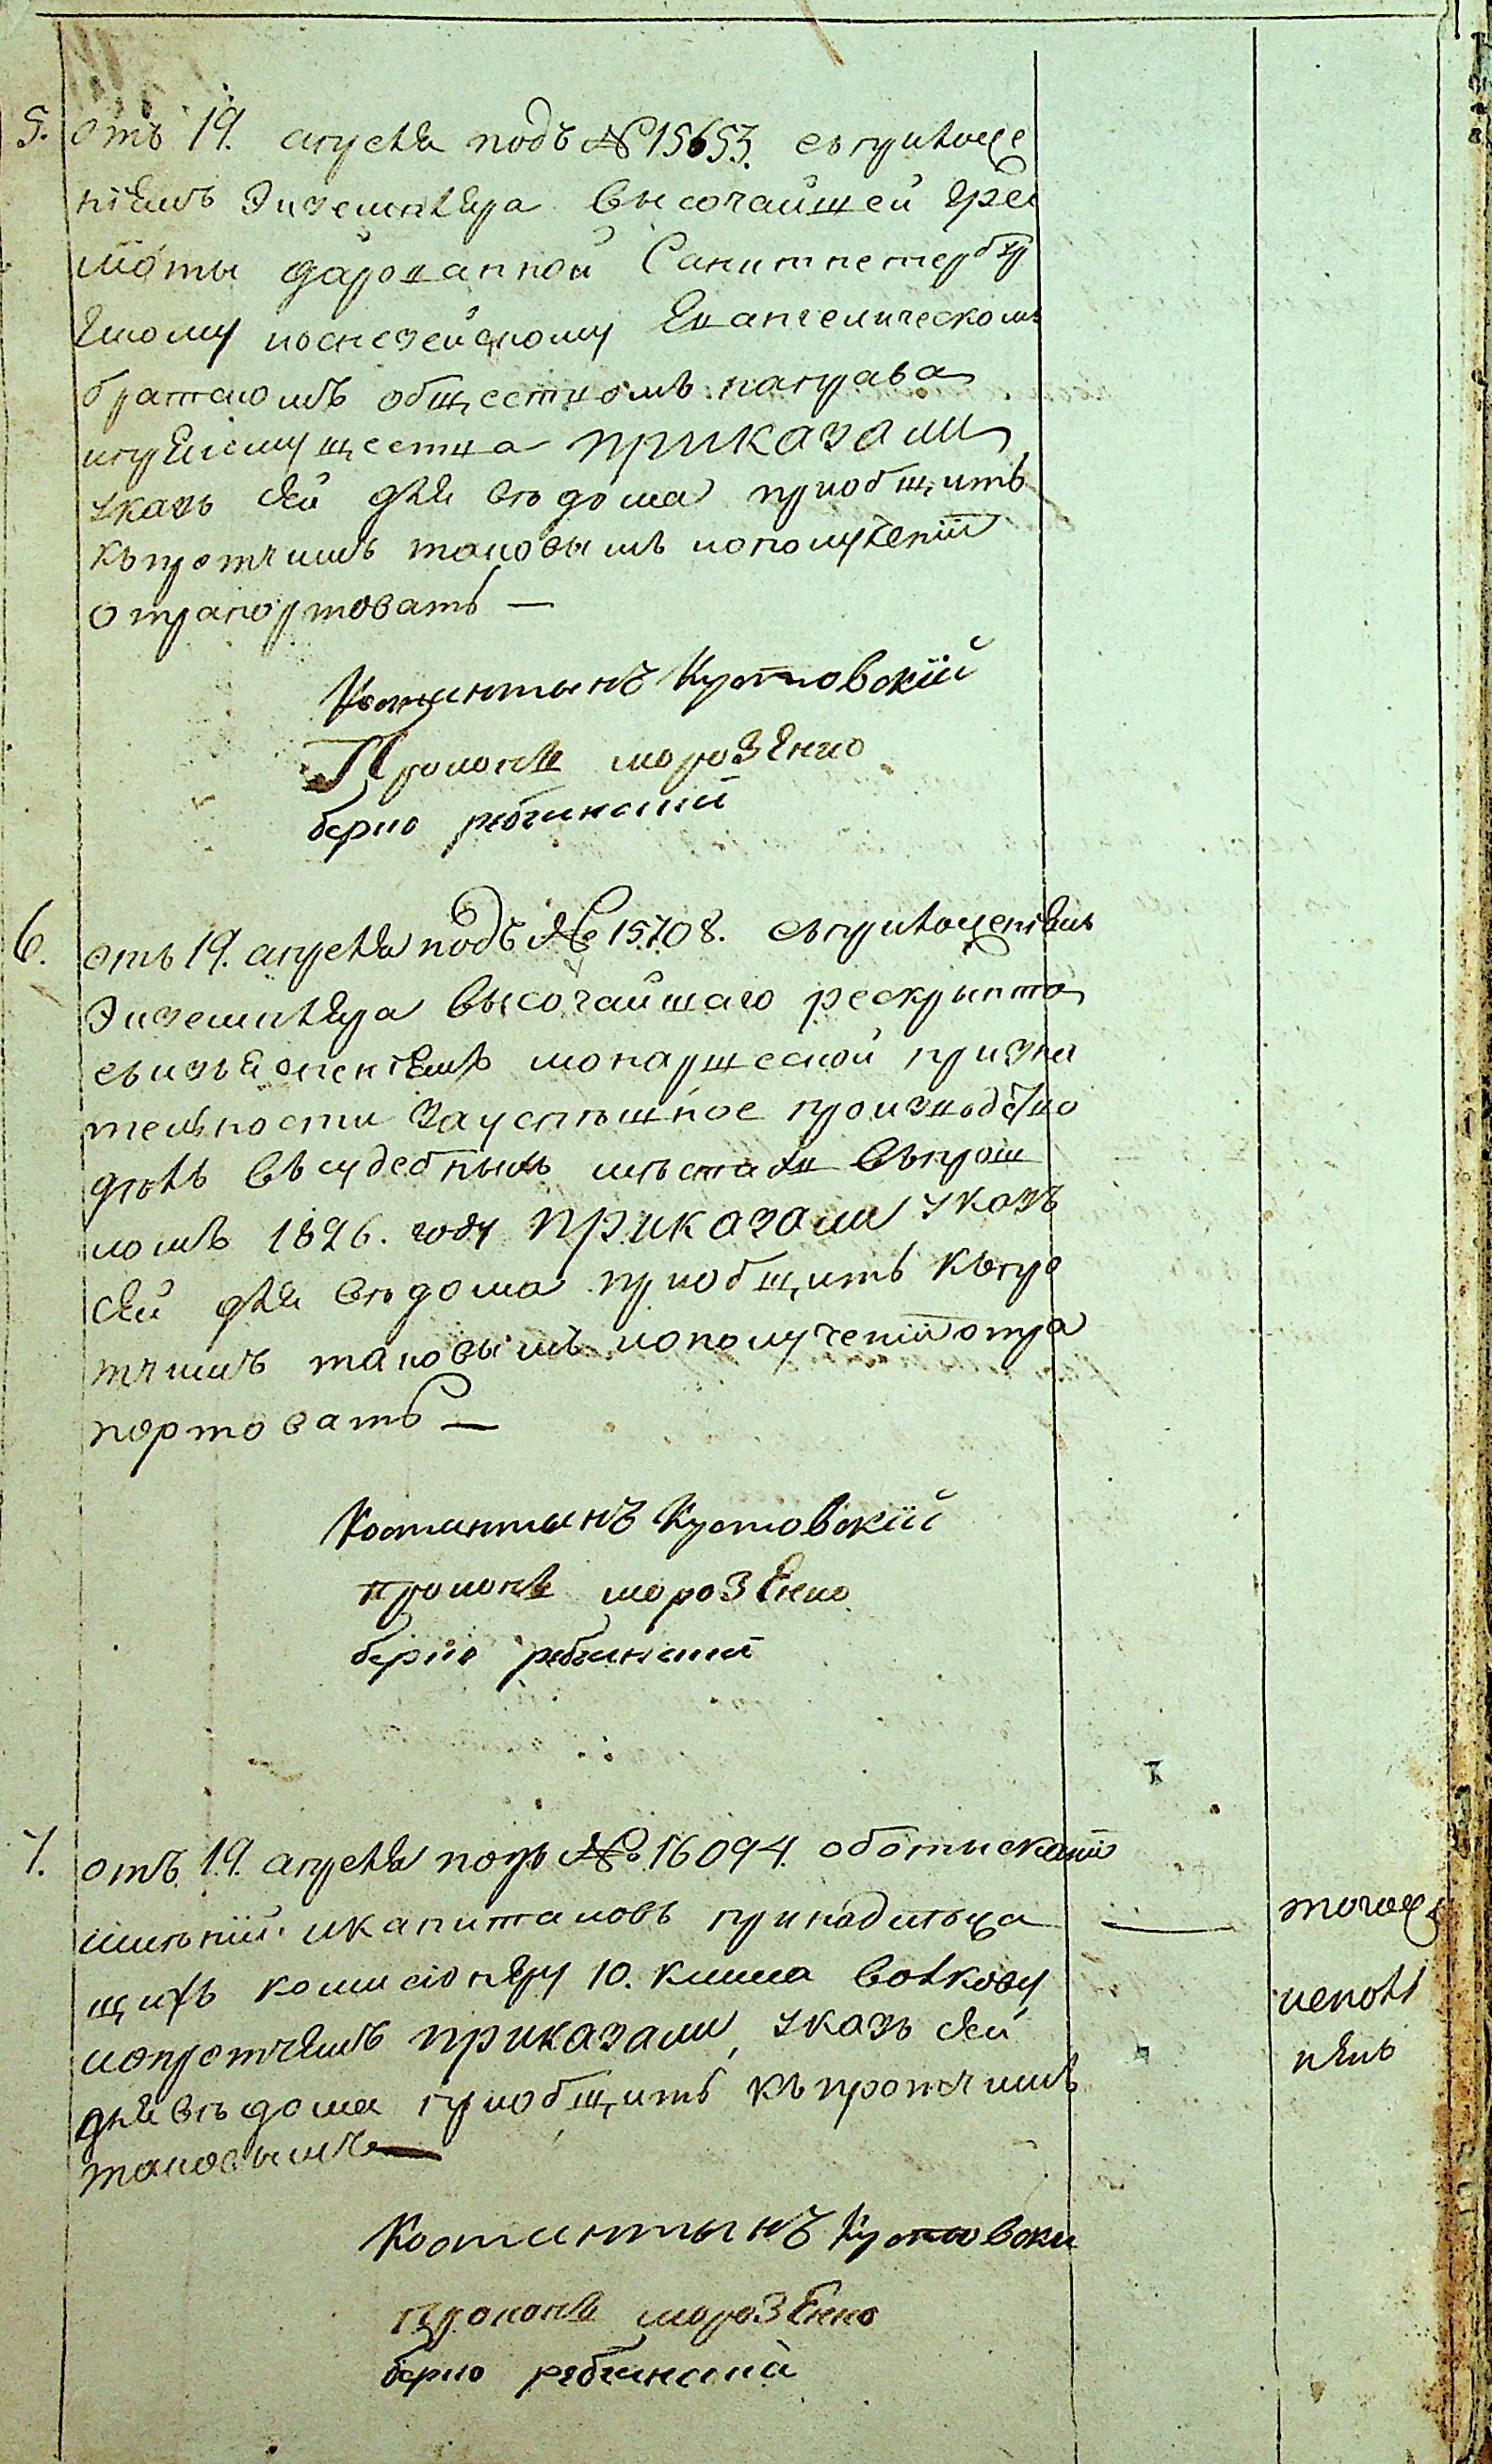 5. отъ 19. апреля подъ № 15653. съприложе
ніемъ Экземпляра Высочайшей Гра
моты дарованной Санктпетербур
скому Евангелическому
братскомъ обществомъ направа
ипреимущества приказали
указъ сей для Въдома приобщить
къпротчимъ таковымъ иополученіи
отрапортовать —
Костянтынъ Кустовскій
Прокопъ морозенко
берко рябчинский
6. отъ 19. апреля подъ № 15708. съприложеніемъ
Экземпляра Высочайшаго рескрыпта
съизъясненіемъ монаршеской призна
тельности зауспѣшное производство
дѣлъ Въсудебныхъ мѣстахъ Въпрош
ломъ 1826. году приказали указъ
сей для Вѣдома приобщить Къпро
тчимъ таковымъ иополученіи отра
портовать —
Костянтынъ Кустовскій
прокопъ морозенко
берко рябчинский
7. отъ 19. апреля подъ № 16094. оботысканіи
имѣній икапиталовъ принадлежа
щихъ комисіонеру 10. класса Волкову
ипротчемъ приказали указъ сей
для Вѣдома приобщить къпротчимъ
таковымъ —
тогож
исполн
ненъ
Костянтынъ Кустовски
прокопъ морозенко
берко рябчинский